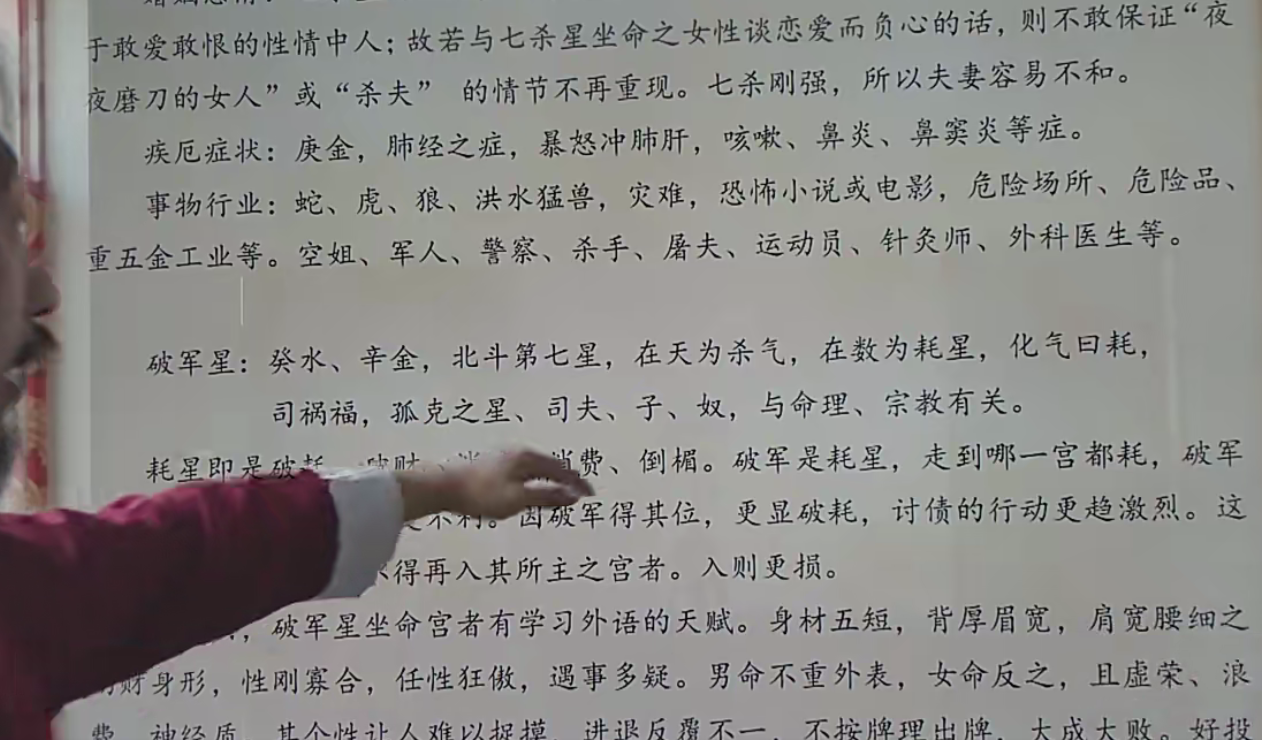 于敢爱敢恨的性情中人；故若与七杀星坐命之女性谈恋爱而负心的话，则不敢保证“夜
夜磨刀的女人”或“杀夫” 的情节不再重现。七杀刚强，所以夫妻容易不和。
疾厄症状：庚金，肺经之症，暴怒冲肺肝，咳嗽、鼻炎、鼻窦炎等症。
事物行业：蛇、虎、狼、洪水猛兽，灾难，恐怖小说或电影，危险场所、危险品、
重五金工业等。空姐、军人、警察、杀手、屠夫、运动员、针灸师、外科医生等。
破军星：癸水、辛金，北斗第七星，在天为杀气，在数为耗星，化气曰耗，
司祸福，孤克之星、司夫、子、奴，与命理、宗教有关。
耗星即是破耗、破财、消费、倒楣。破军是耗星，走到哪一宫都耗，破军
更不利。因破军得其位，更显破耗，讨债的行动更趋激烈。这
得再入其所主之宫者。入则更损。
，破军星坐命宫者有学习外语的天赋。身材五短，背厚眉宽，肩宽腰细之
身形，性刚寡合，任性狂傲，遇事多疑。男命不重外表，女命反之，且虚荣、浪
费、神经质，其个性让人难以捉摸，进退反覆不一，不按牌理出牌，大成大败。好投